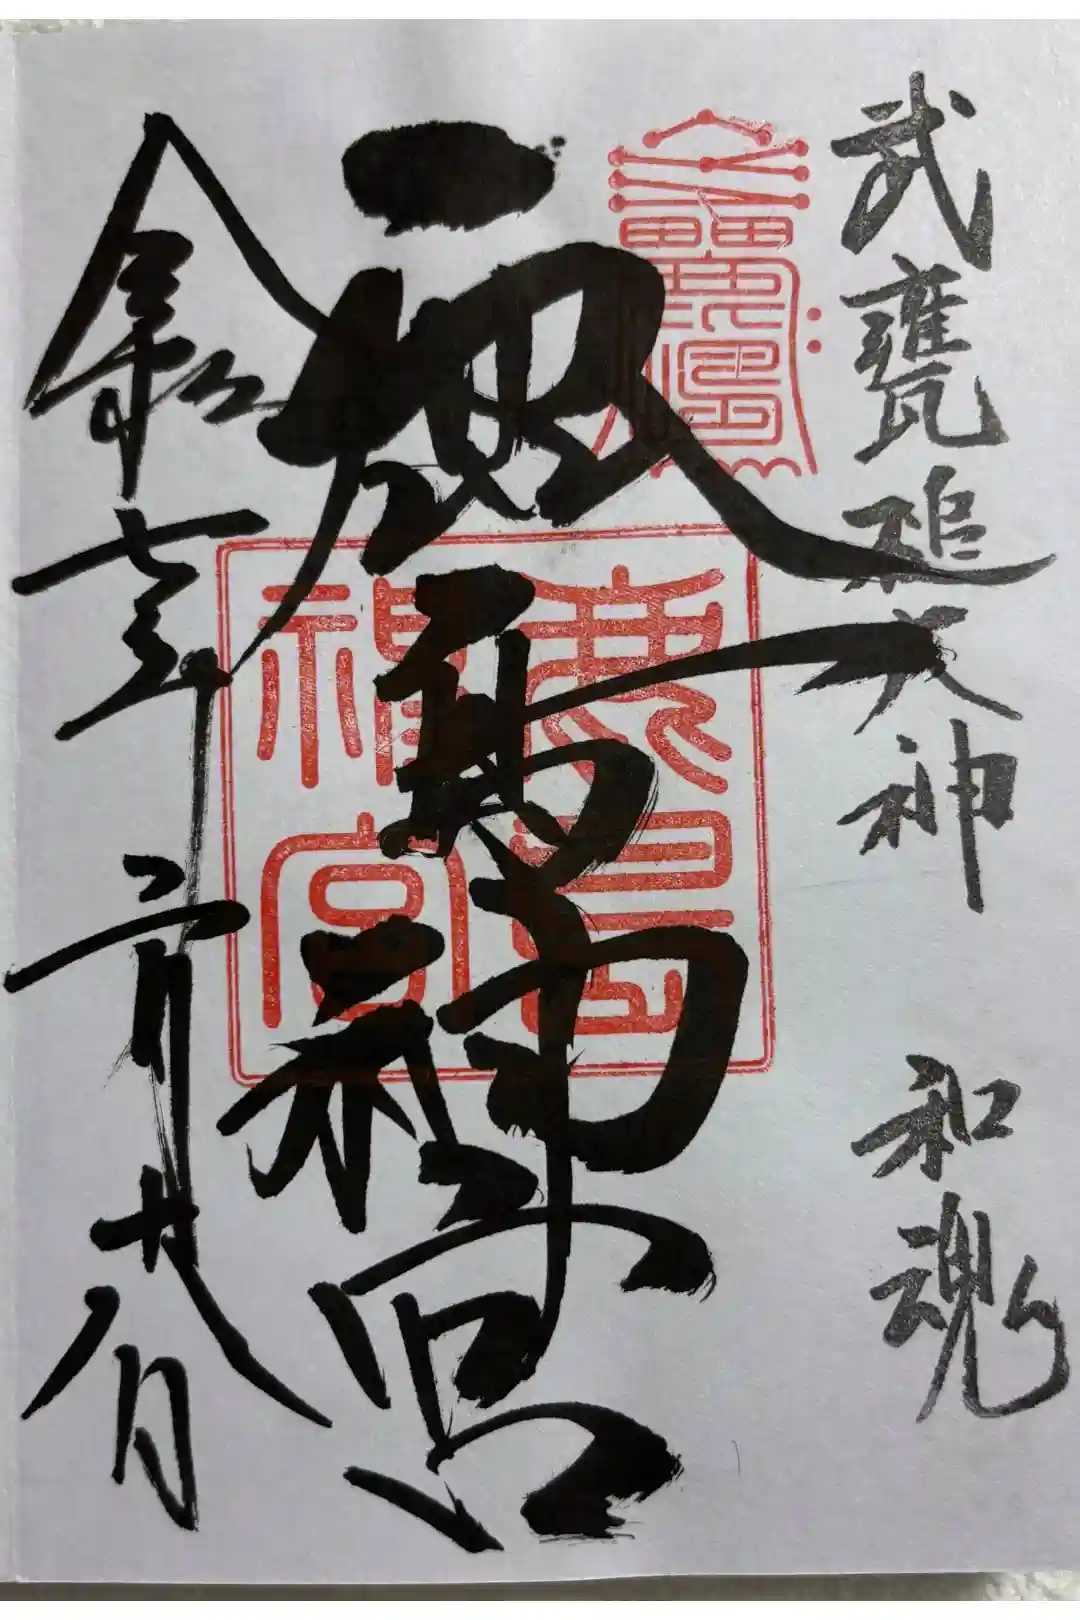 武甕槌大神　和魂
鹿島神宮
鹿島
神宮
令和七年二月廿八日